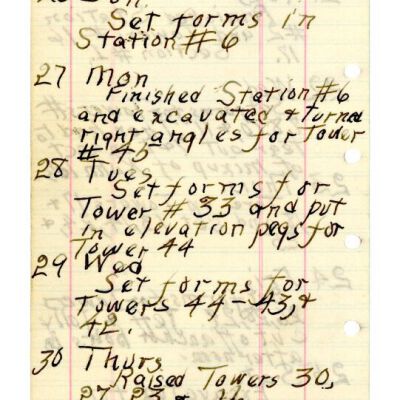 Sun.
Set forms in
Station # 6
27 Mon
Finished Station #6
and excavated & turned
right angles for Tower
# 45
28 Tues
Set forms for
Tower # 33 and put
in elevation pegs for
Tower 44
29 Wed
Set forms for
Towers 44-43, &
42.
30 Thurs
Raised Towers 30,
27, 23 &